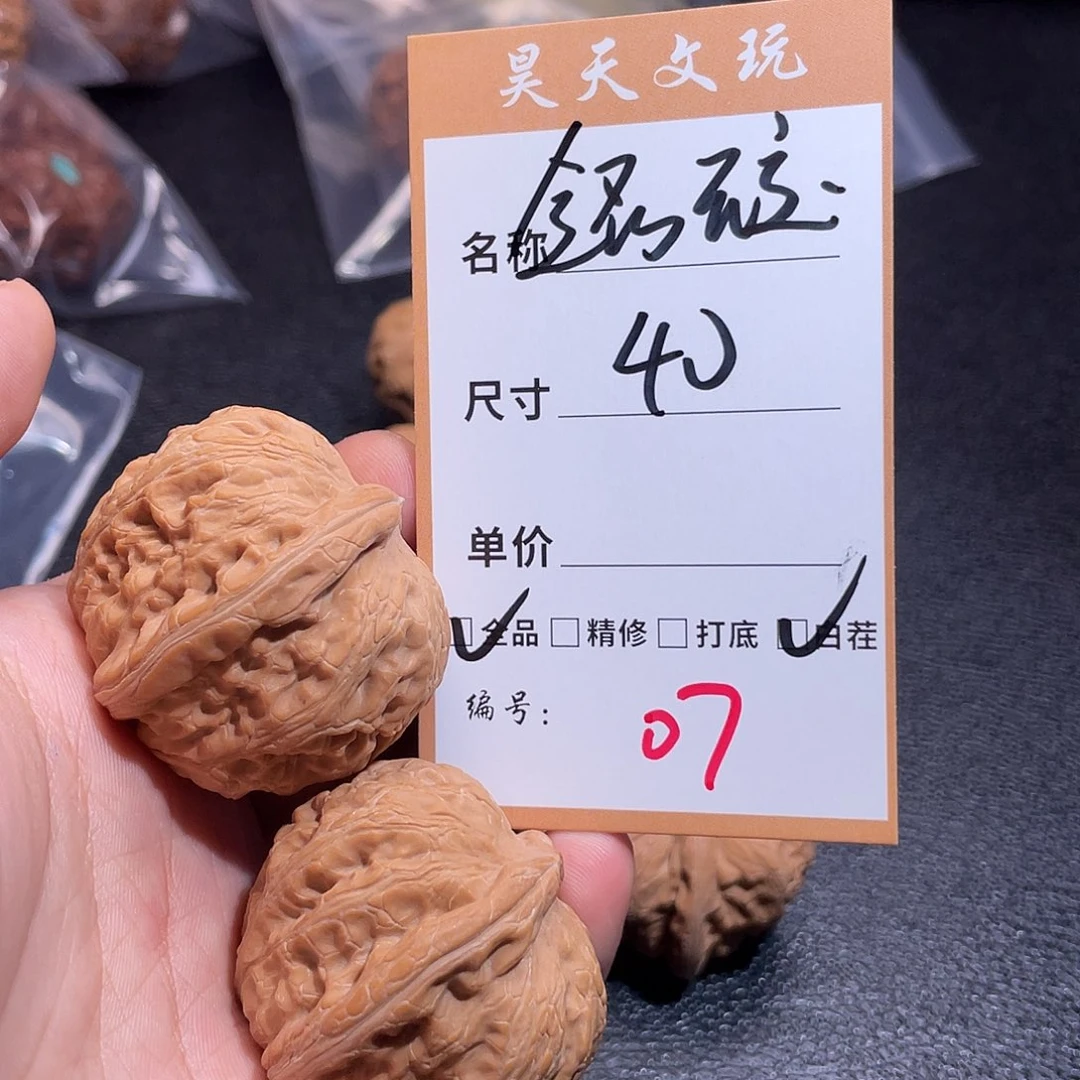 昊天文玩
名称
尺寸 40
单价
全品 精修 打底 白茬
编号： 07